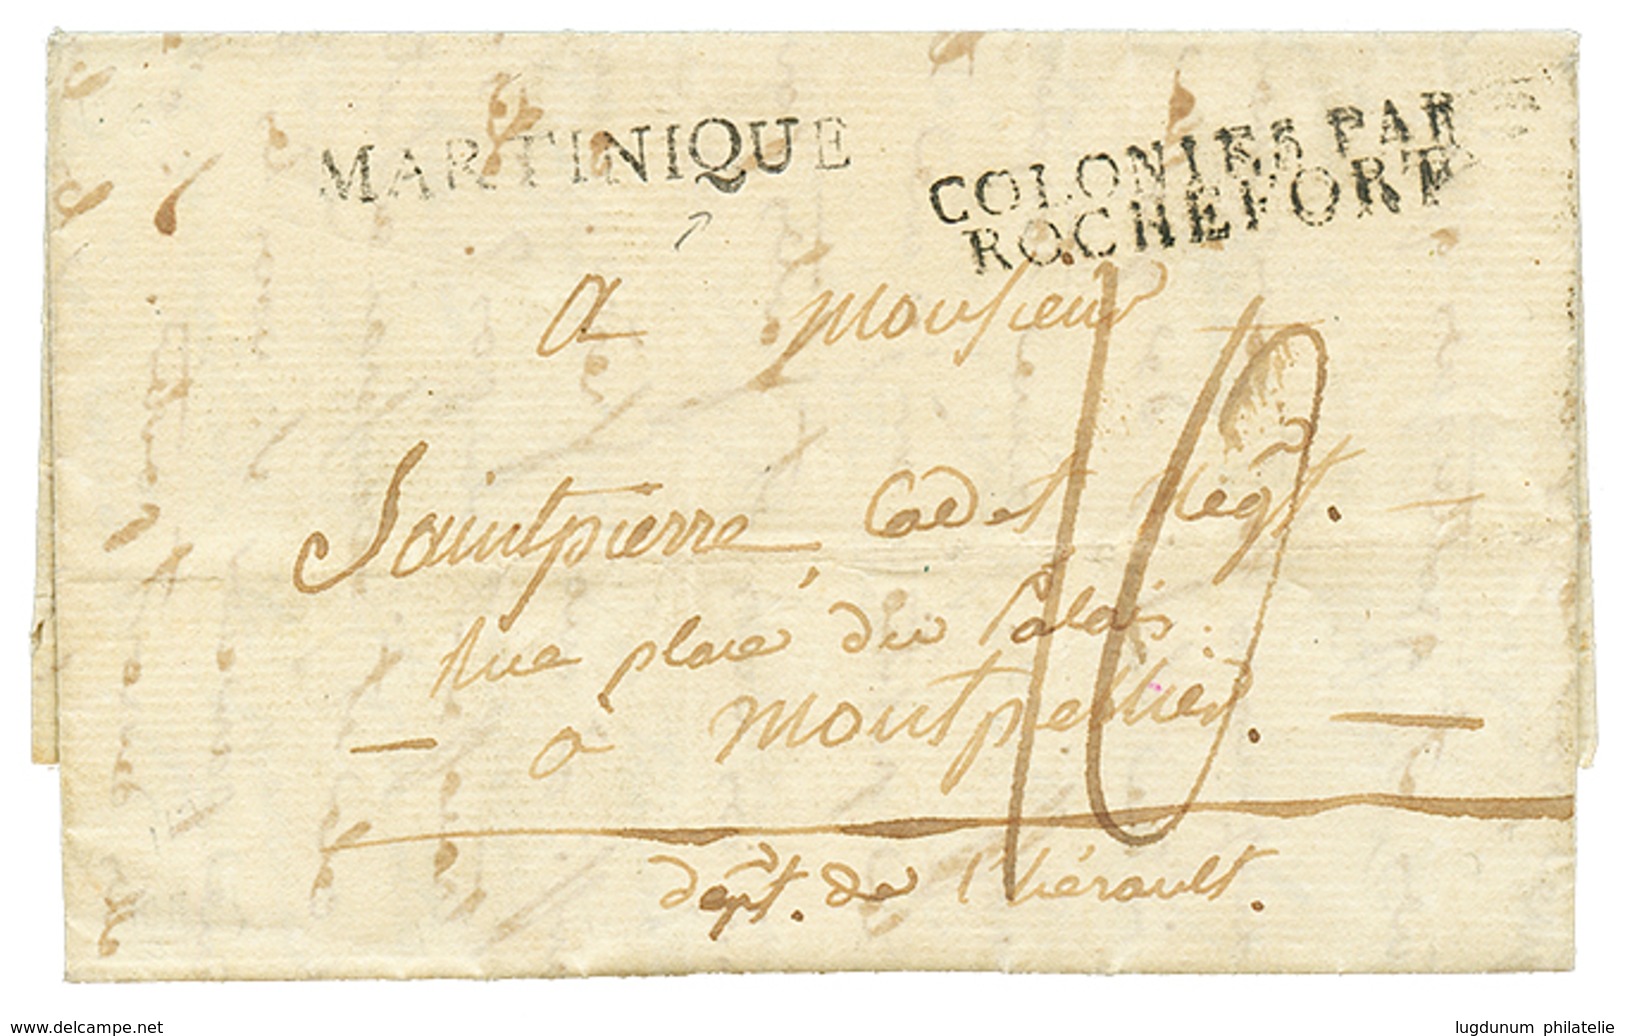 MARTINIQUE
COLONIES PAR
ROCHEFORT
a monsieur
Saintpierre, Cadet négt.
Rue place du Palais.
— à montpellier. —
10
dept. de l'hérault.
www.delcampe.net
lugdunum philatelie